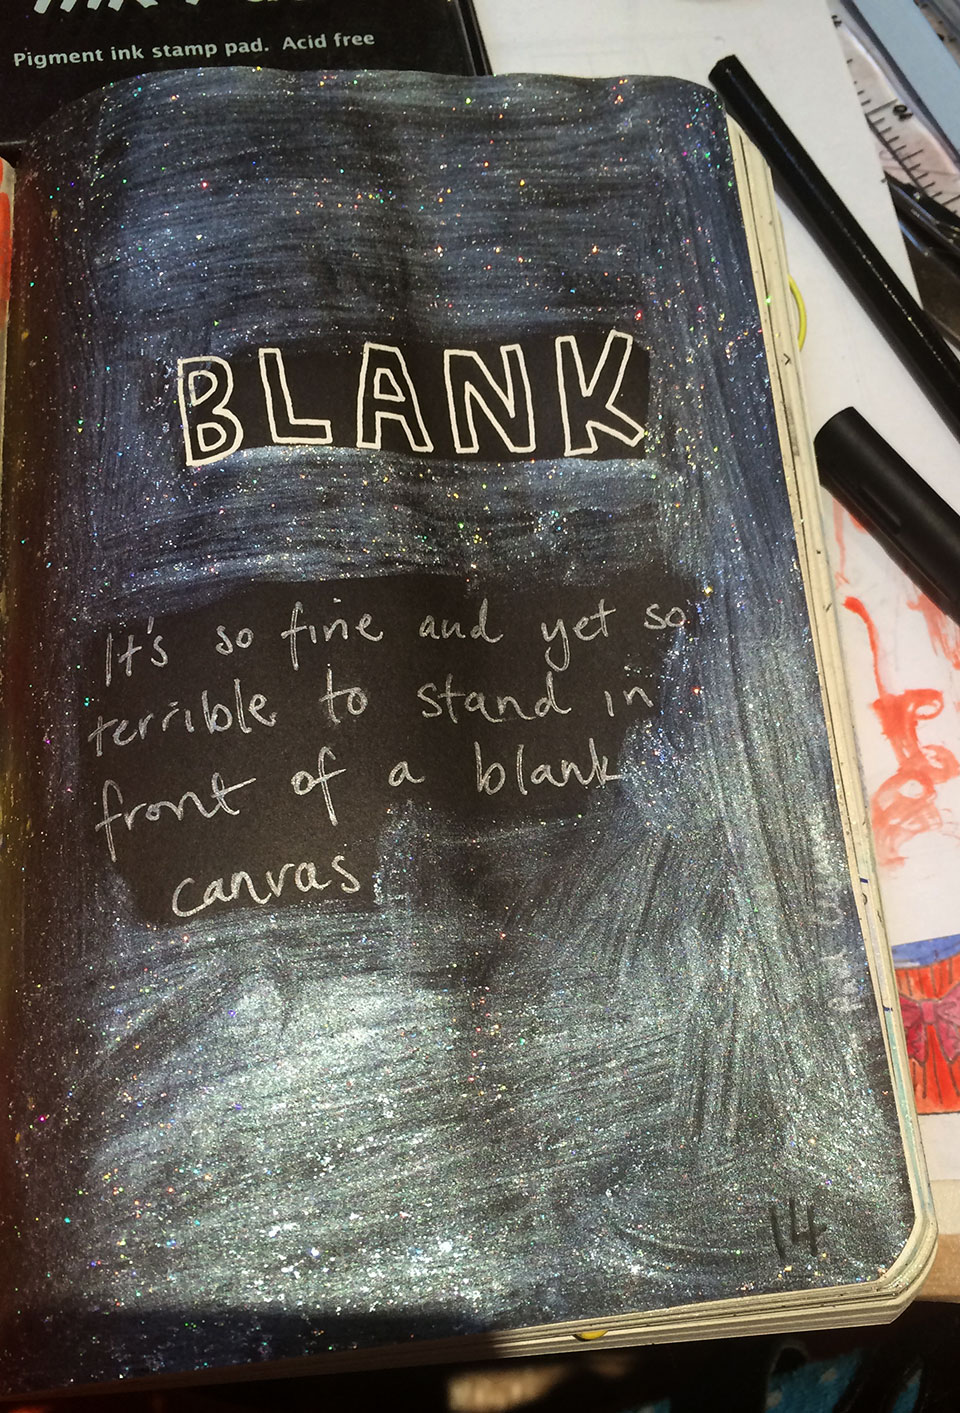 Pigment ink stamp pad. Acid free
BLANK
It's so fine and yet so
terrible to stand in
front of a blank
canvas
14